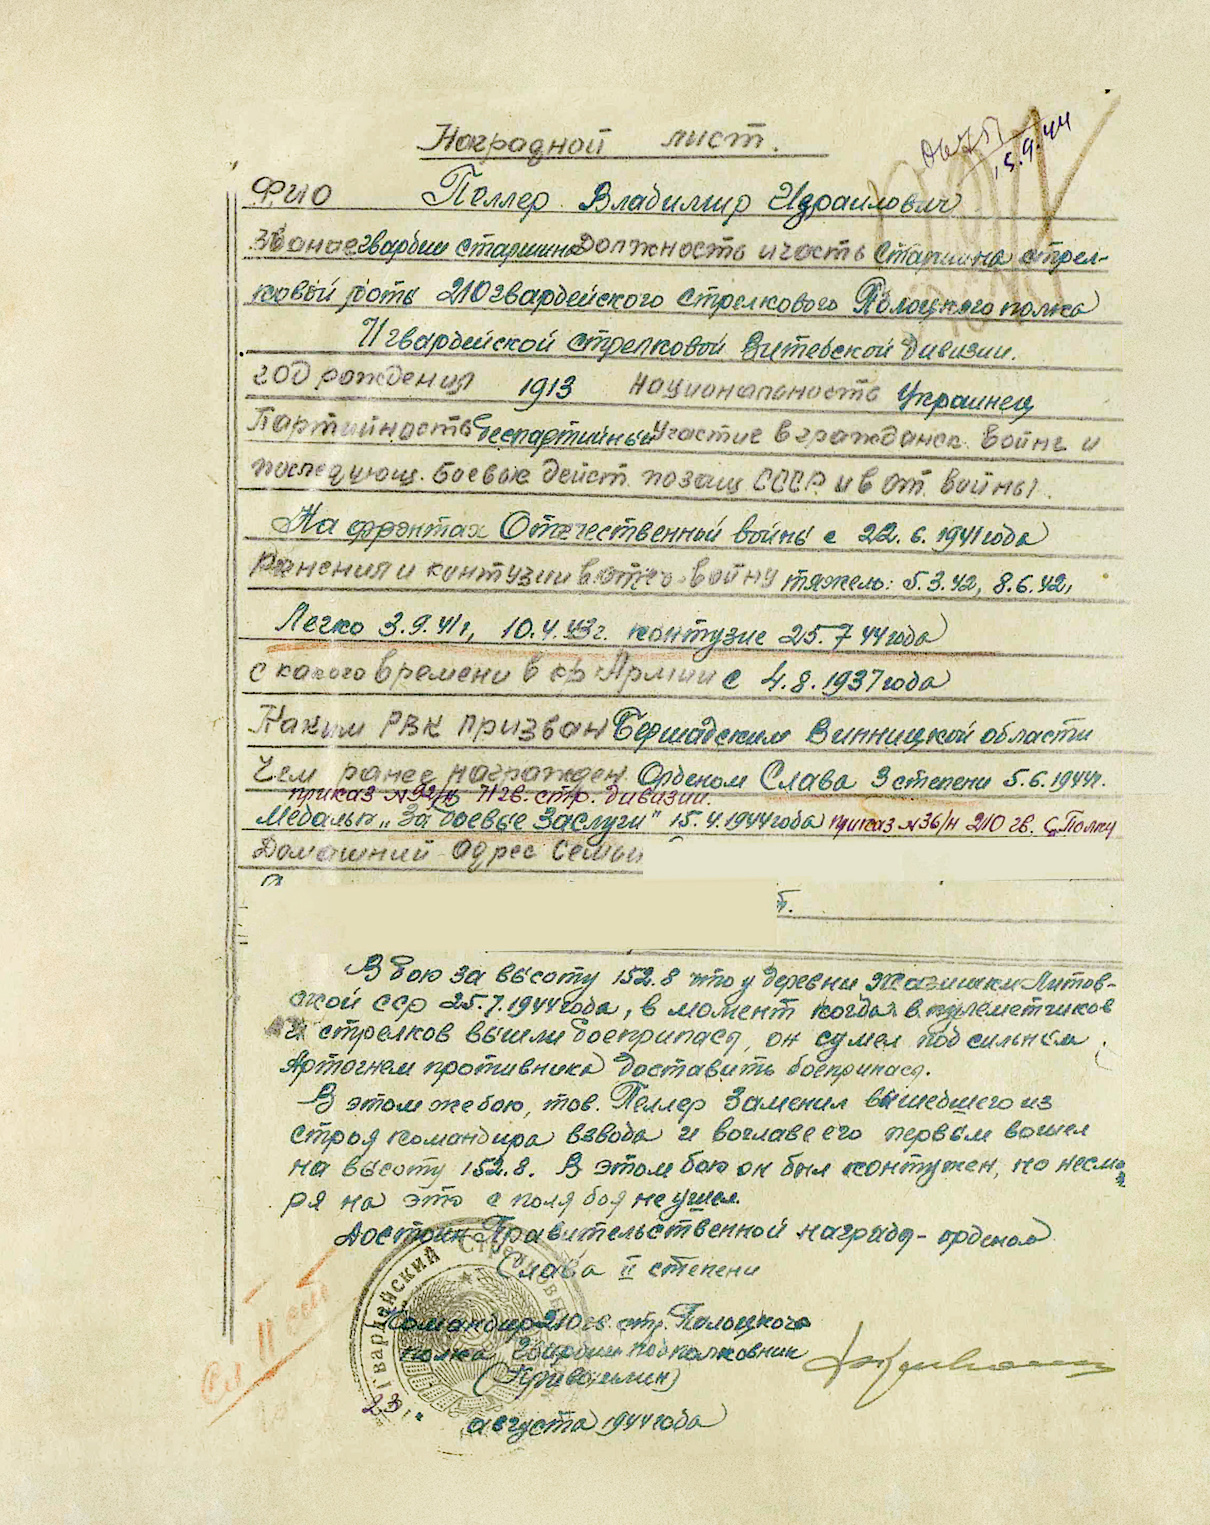 Наградной лист.
15.9.44
ФИО Пеллер Владимир Израилович
Звание гвардии старшина Должность и часть Старшина стрел-
ковой роты 210 гвардейского стрелкового Полоцкого полка
71 гвардейской стрелковой Витебской Дивизии.
год рождения 1913 Национальность Украинец
Партийность беспартийный Участие в гражданск. войне и
последующ. боевых дейст. по защ. СССР и в от. войны.
На фронтах Отечественной войны с 22.6.1941 года
Ранения и контузии в отеч. войну тяжело: 5.3.42, 8.6.42,
Легко 3.9.41г, 10.4.43г. контузие 25.7 44 года
с какого времени в кр. Армии с 4.8.1937 года
Каким РВК призван Бершадским Винницкой области
Чем ранее награжден. Орденом Слава 3 степени 5.6.1944г.
приказ №92/н 71 гв. стр. дивизии.
Медалью „За боевые Заслуги" 15.4.1944 года приказ №36/н 210 гв. с. Полку
Домашний Адрес Семьи
В бою за высоту 152.8 что у деревни Литов-
ской ССР 25.7.1944 года, в момент когда в пулеметчиков
и стрелков вышли боеприпасы, он сумел под сильным
Артогнем противника доставить боеприпасы.
В этом же бою, тов. Пеллер Заменил вышедшего из
строя командира взвода и воглаве его первым вошел
на высоту 152.8. В этом бою он был контужен, но несмо
ря на это с поля боя не ушел.
Достоин Правительственной награды - орденом
Слава II степени
Гвардейский Стрелковый
Командир 210 гв. стр. Полоцкого
полка Гвардии подполковник
II
23
августа 1944 года